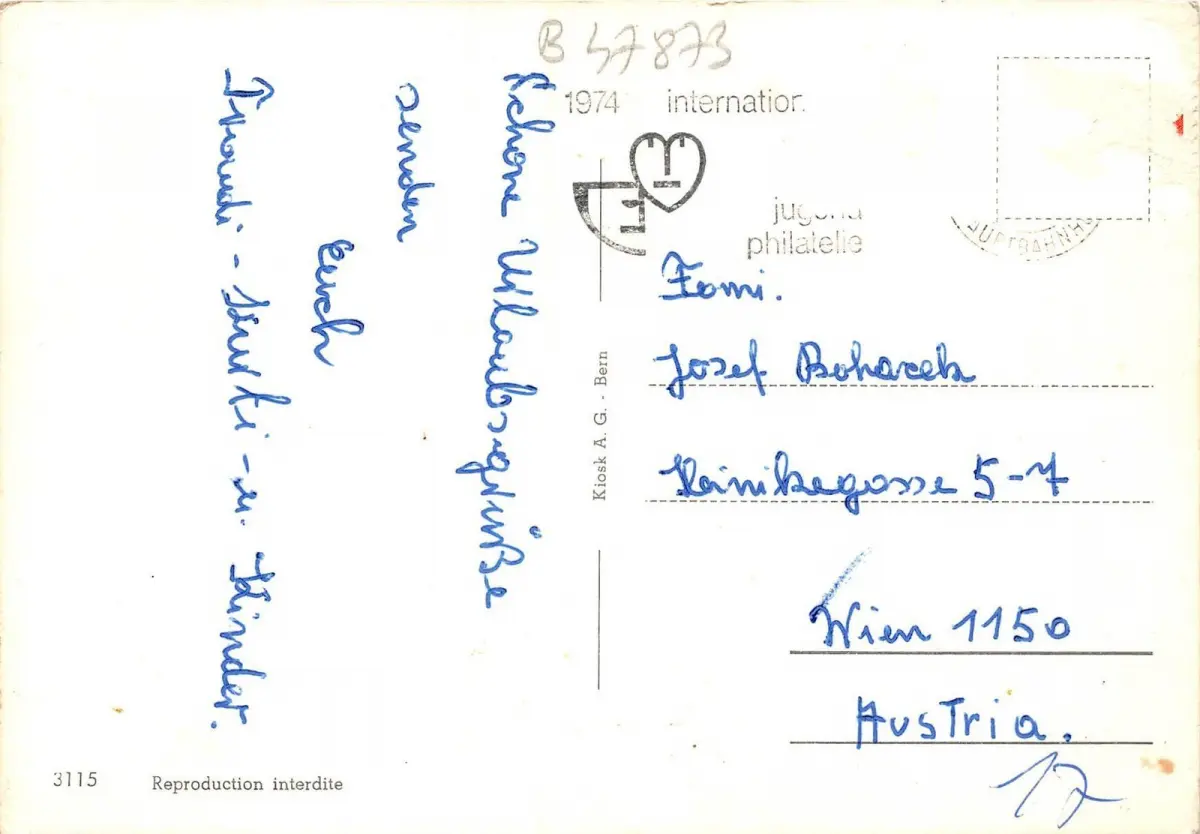 B 47873
1974 internation
jugend
philatelie
AUPTBAHNH
Schöne Urlaubsgrüße
senden
Euch
Traudi - Kurti - u. Kinder.
Kiosk A. G. - Bern
Fami.
Josef Bohacek
Heinikegasse 5-7
Wien 1150
Austria.
17
3115 Reproduction interdite